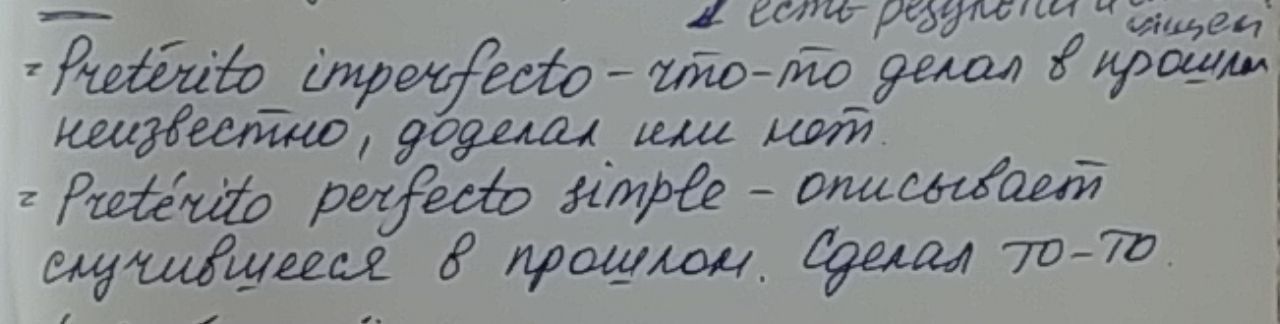 есть
- Pretérito imperfecto - что-то делал в прошлом
неизвестно, доделал или нет.
- Pretérito perfecto simple - описывает
случившееся в прошлом. Сделал то-то.